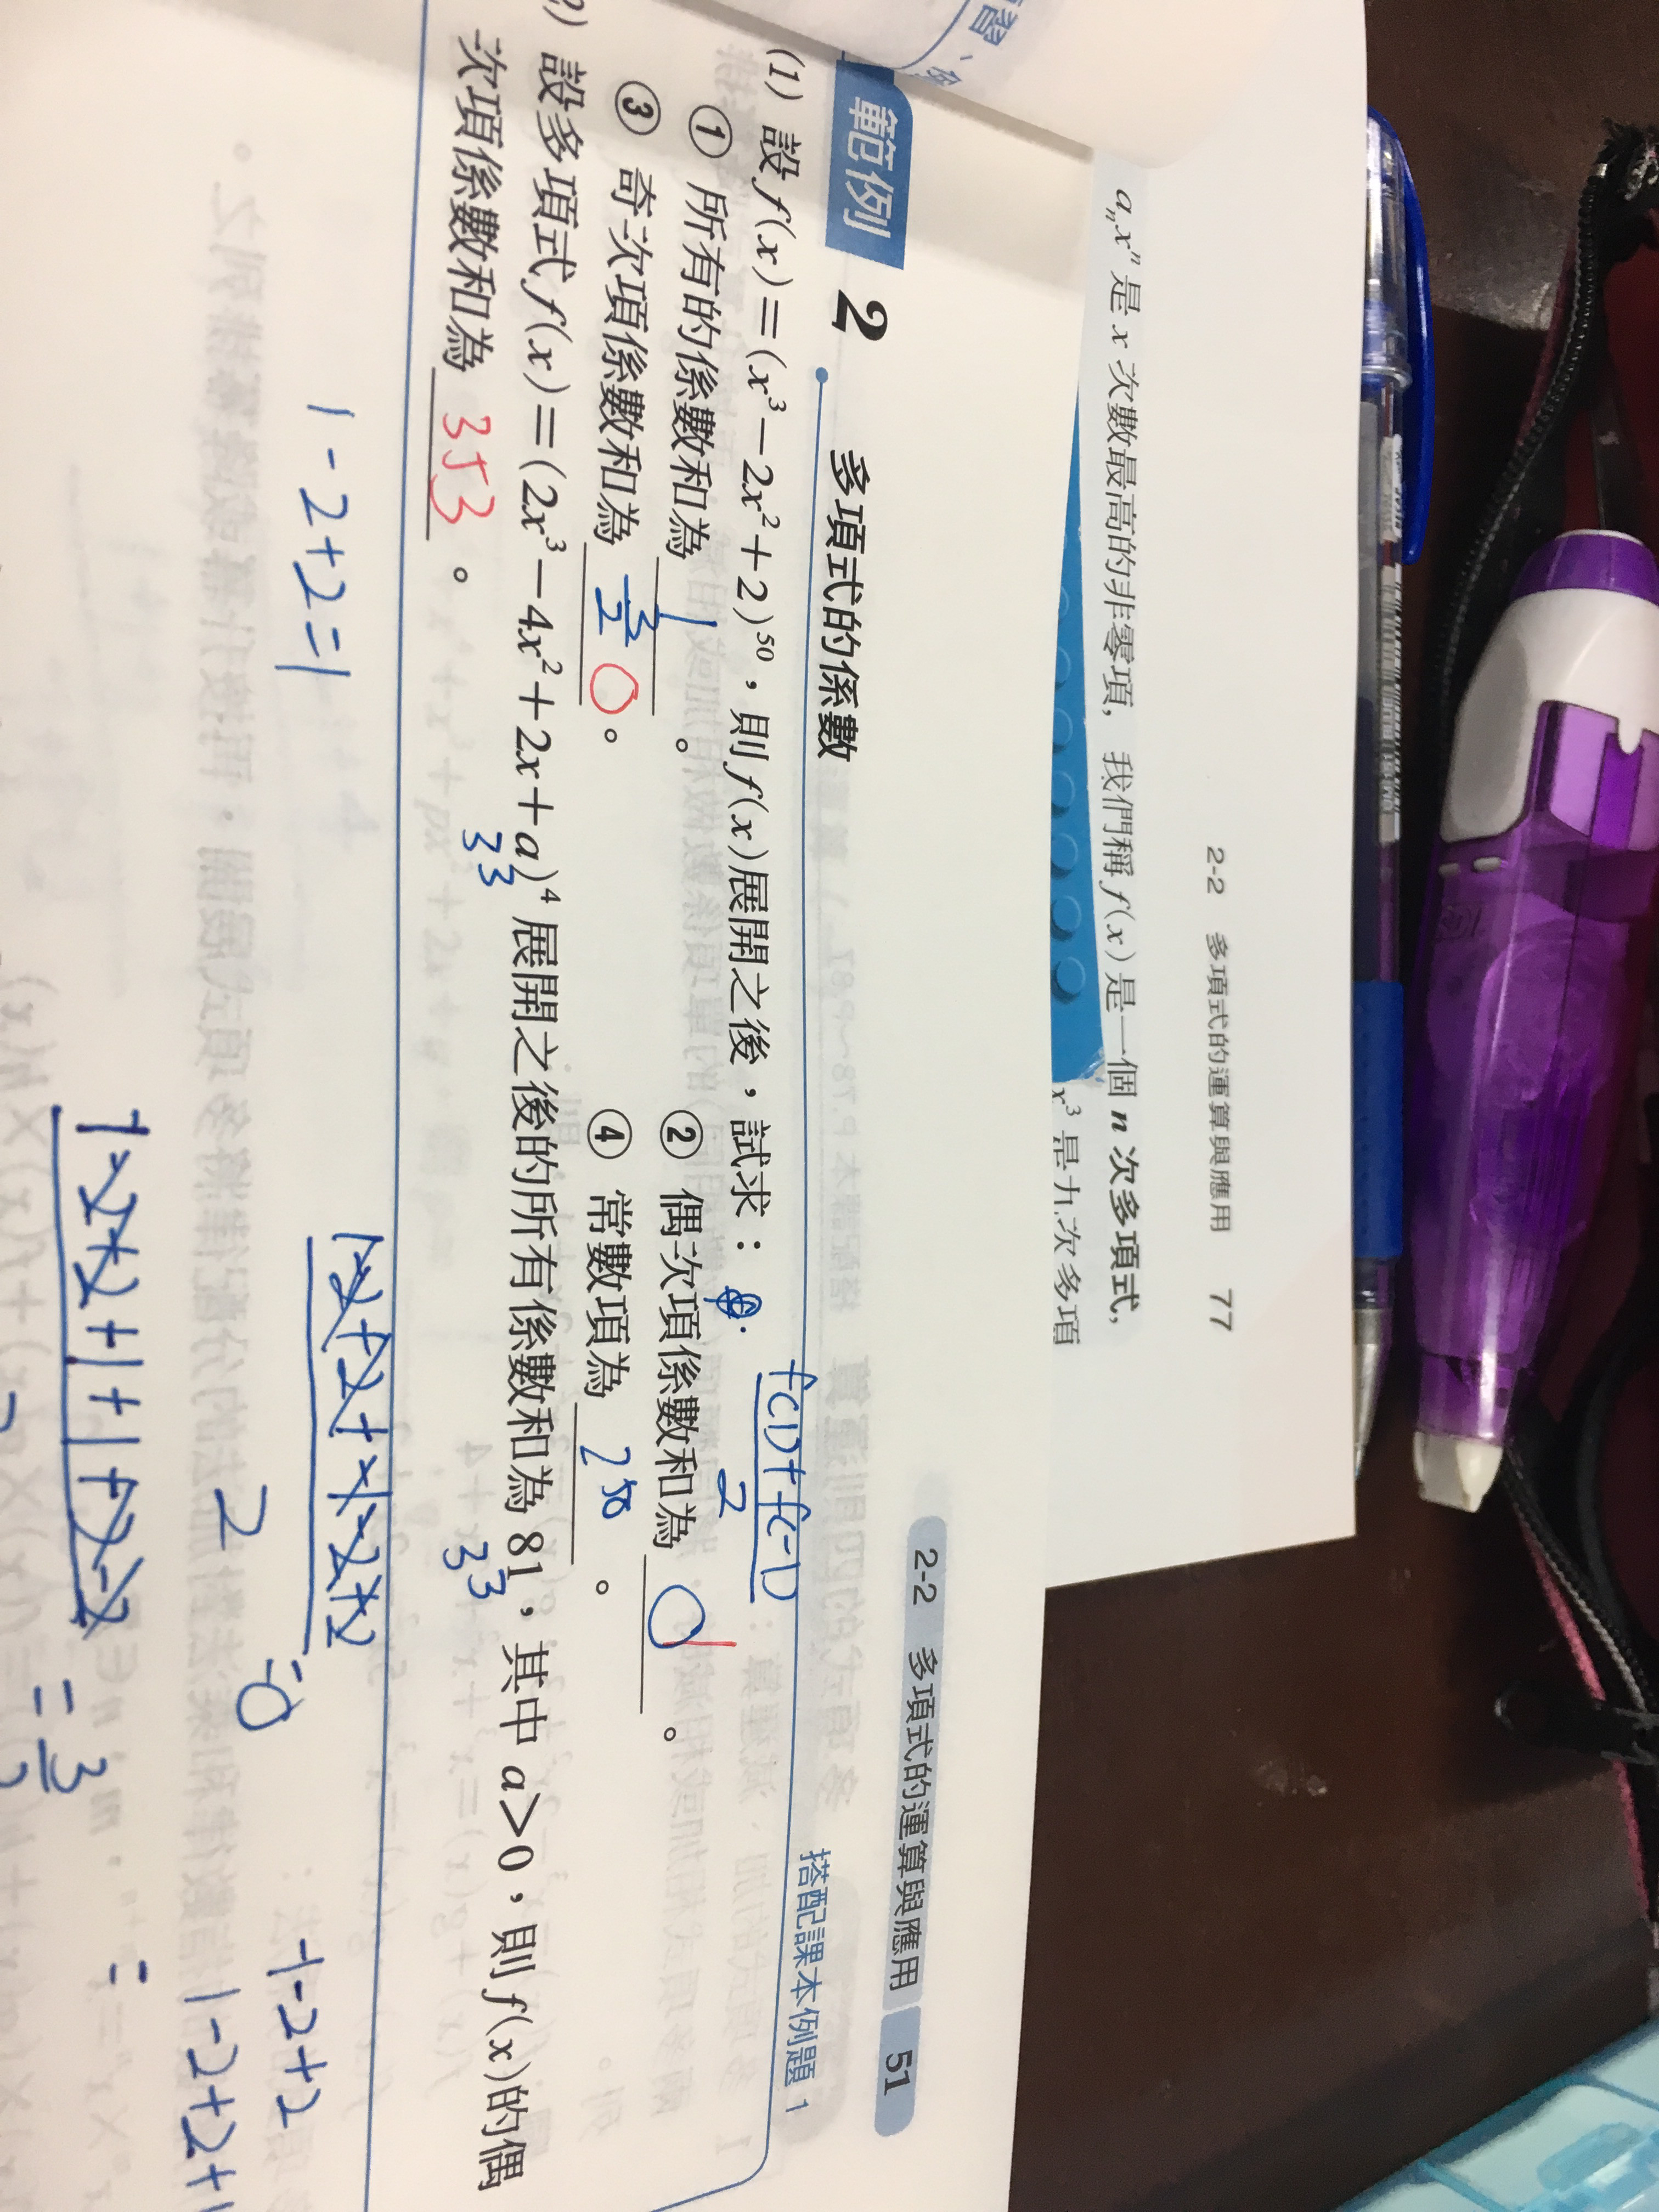 2-2 多項式的運算與應用 77
aₙxⁿ是 x 次數最高的非零項， 我們稱 f(x) 是一個 n 次多項式，
x³ 是九次多項
2-2 多項式的運算與應用 51
範例 2 多項式的係數 搭配課本例題 1
(1) 設 f(x)=(x³－2x²＋2)⁵⁰，則 f(x)展開之後，試求：
f(1)+f(-1)
2
① 所有的係數和為 1 。 ② 偶次項係數和為 1 。
③ 奇次項係數和為 0 。 ④ 常數項為 2⁵⁰ 。
2) 設多項式 f(x)=(2x³－4x²＋2x＋a)⁴ 展開之後的所有係數和為 81，其中 a>0，則 f(x)的偶
33 33
次項係數和為 353 。
1-2+2=1
2
=0
-1-2+2
1-2+2+